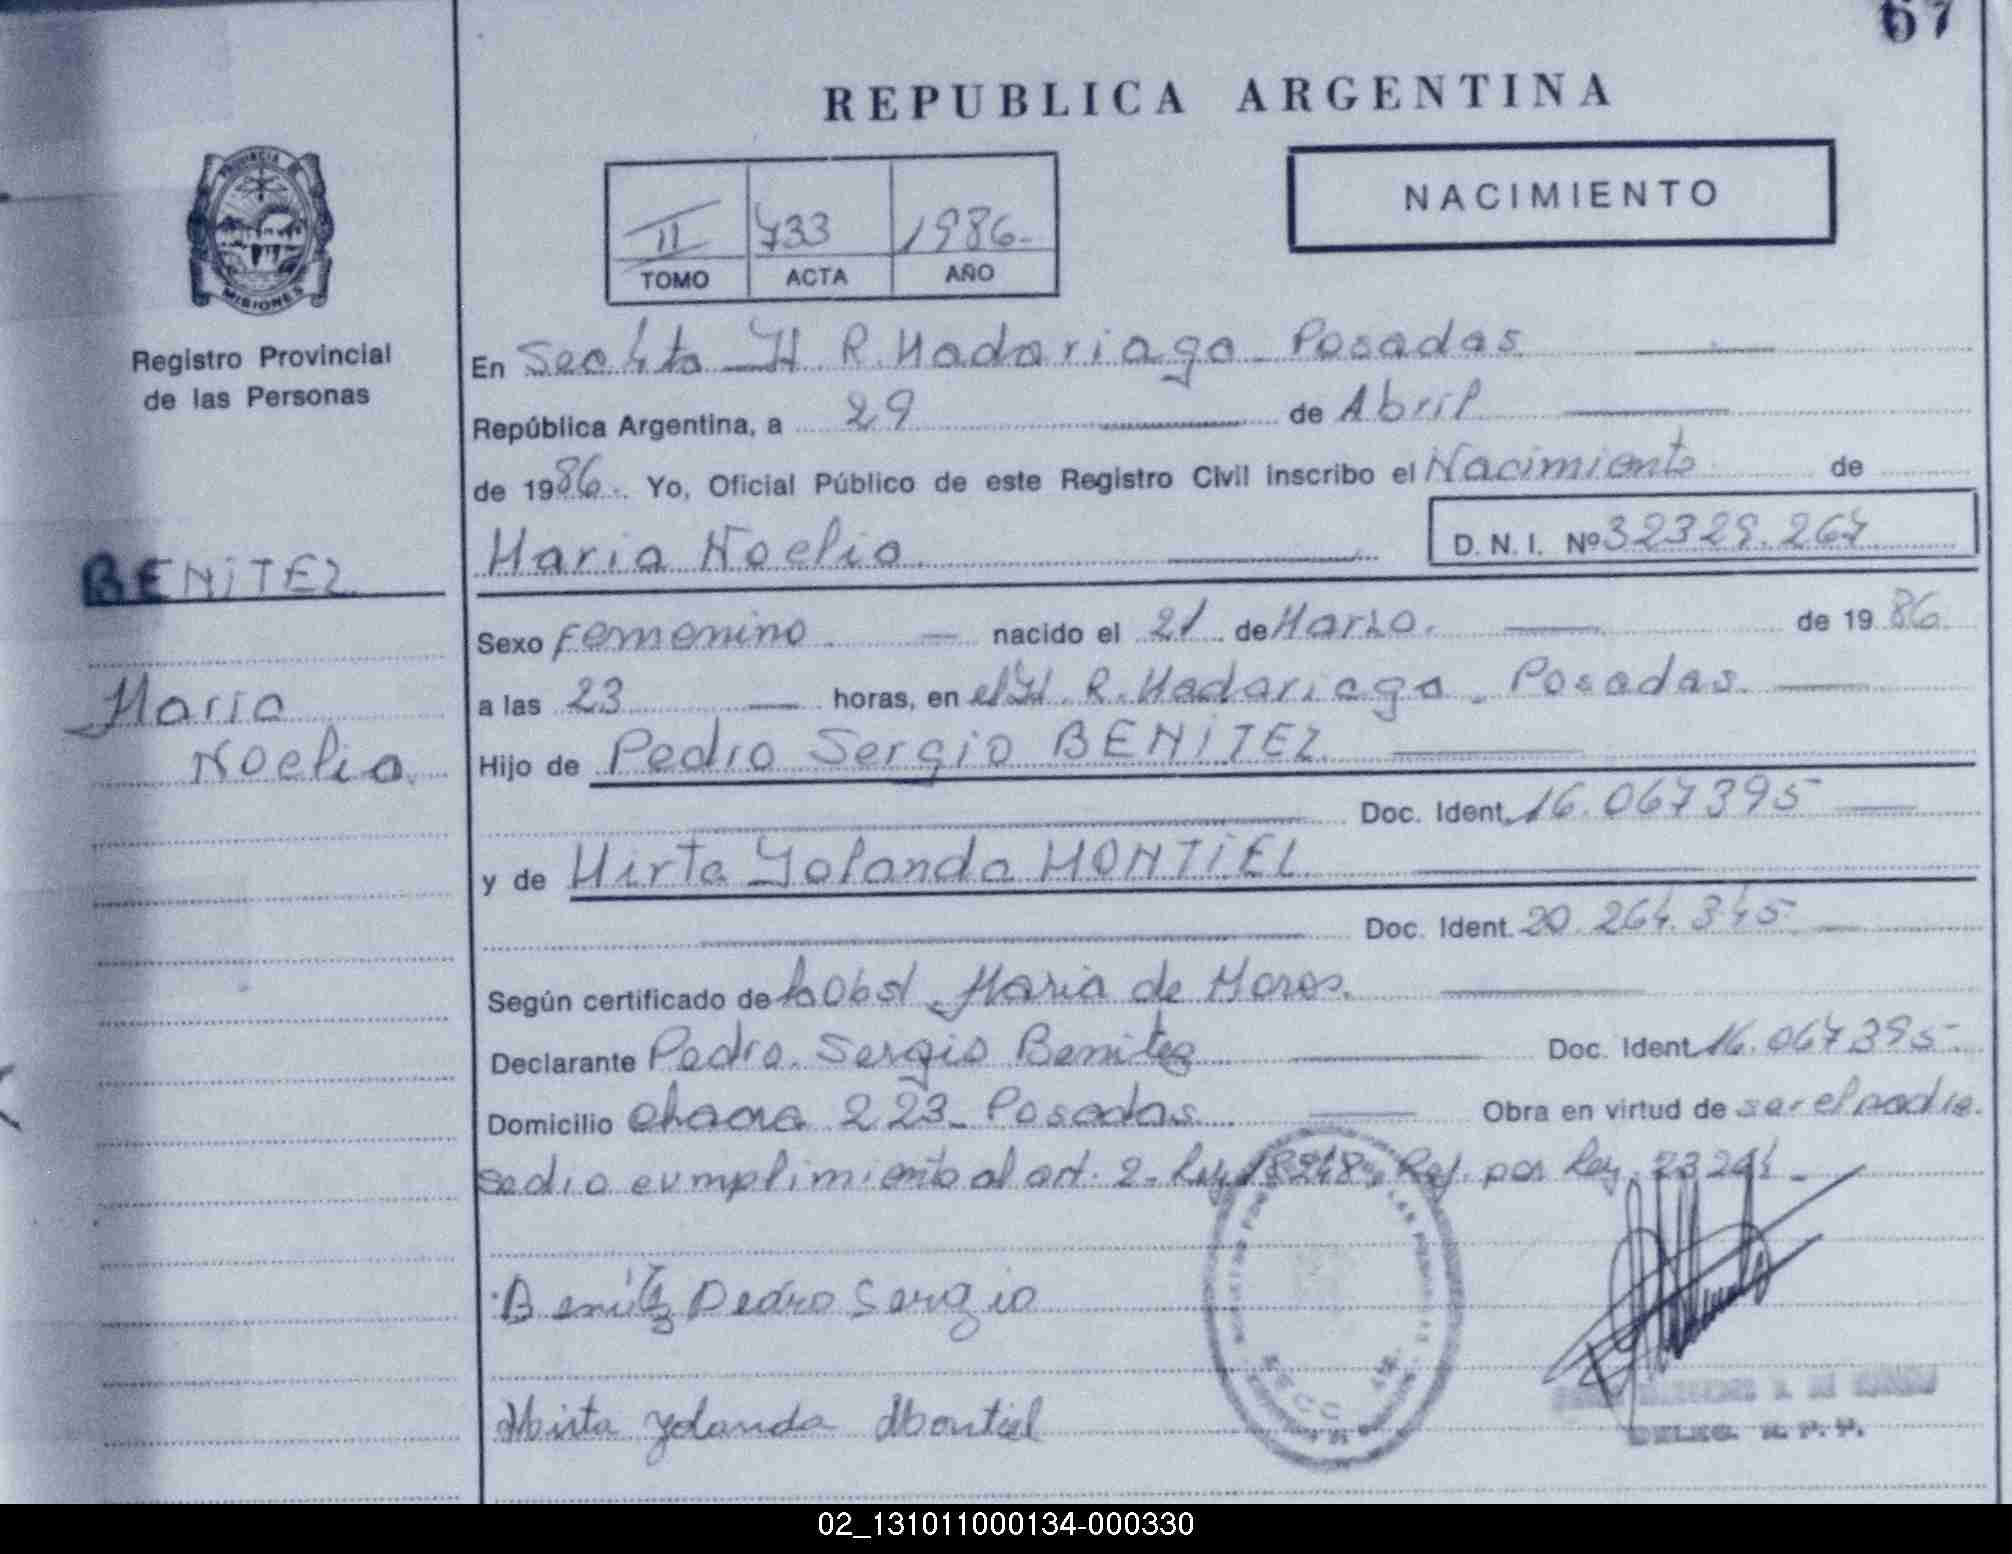 67
REPUBLICA ARGENTINA
NACIMIENTO
II 733 1986.-
TOMO ACTA AÑO
PROVINCIA DE
MISIONES
Registro Provincial
de las Personas
En Secc 4ta H. R. Madariaga - Posadas
República Argentina, a 29 de Abril
de 1986. Yo, Oficial Público de este Registro Civil inscribo el Nacimiento de
Maria Noelia D. N. I. Nº 32329.267
BENiTEZ
Sexo Femenino nacido el 21 de Marzo. de 1986
Maria
a las 23 horas, en el H. R. Madariaga - Posadas.
Noelia.
Hijo de Pedro Sergio BENiTEZ.
Doc. Ident. 16.067395
y de Mirta Yolanda MONTiEL
Doc. Ident. 20.264.345
Según certificado de la Obst. Maria de Moros.
Declarante Pedro Sergio Benitez Doc. Ident. 16.067395
Domicilio chacra 223 - Posadas Obra en virtud de ser el padre.
se dio cumplimiento al art. 2 - Ley 18248 Ref. por Ley. 23264 -
Benitez Pedro Sergio
Mirta Yolanda Montiel
DELEG. R. P. P.
02_131011000134-000330